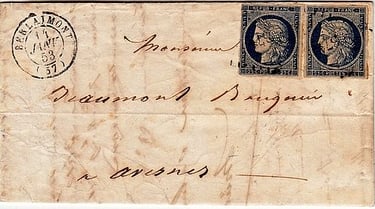 BERLAIMONT
14
JANV.
53
(57)
REPUB FRANC
REPUB FRANC
Monsieur
Beaumont
a avesnes